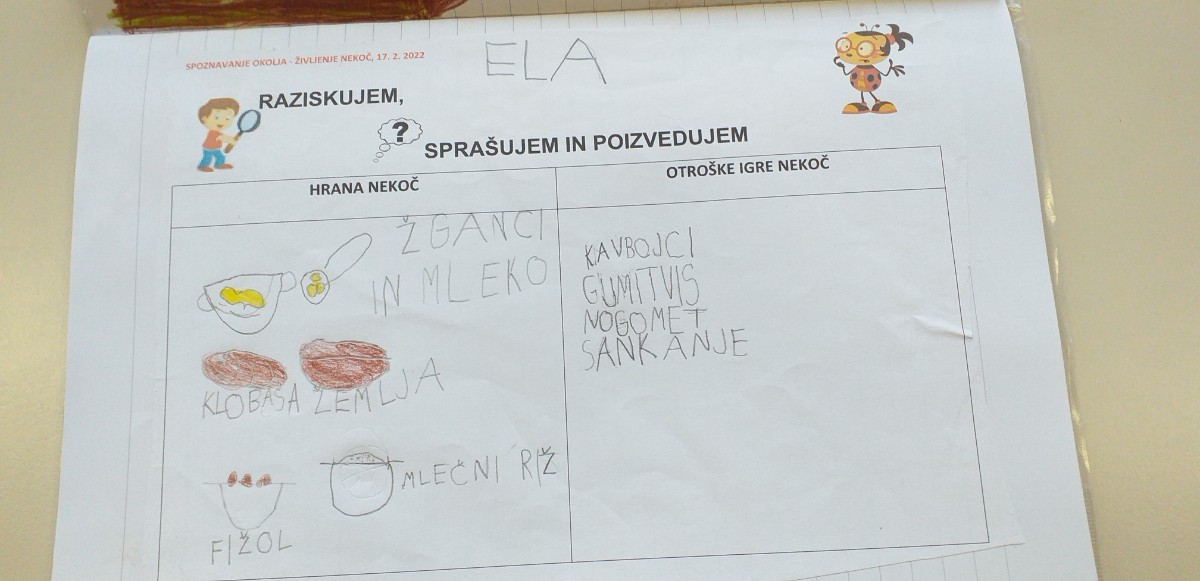 SPOZNAVANJE OKOLJA - ŽIVLJENJE NEKOČ, 17. 2. 2022
ELA
RAZISKUJEM,
?
SPRAŠUJEM IN POIZVEDUJEM
HRANA NEKOČ
OTROŠKE IGRE NEKOČ
ŽGANCI
IN MLEKO
KLOBASA ŽEMLJA
MLEČNI RIŽ
FIŽOL
KAVBOJCI
GUMITVIS
NOGOMET
SANKANJE